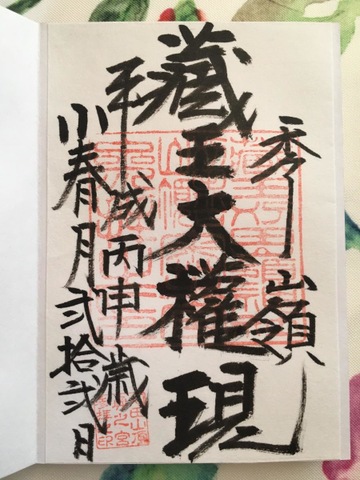 秀山嶺
藏王大權現
平成丙申歳
小春月弐拾弐日